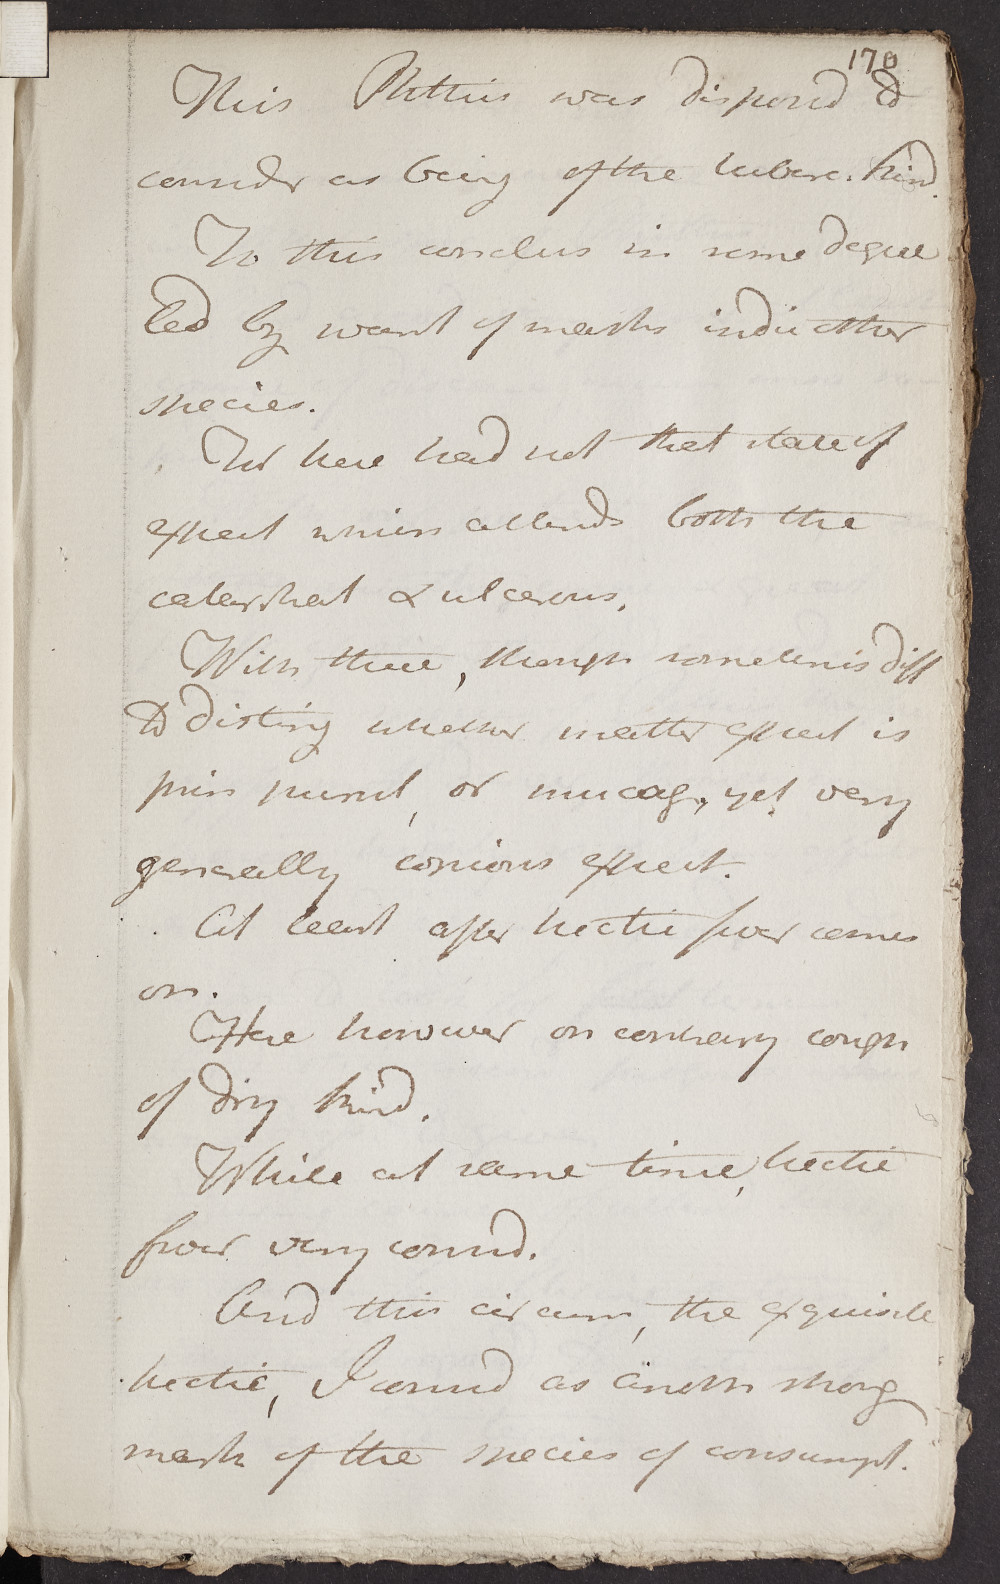 170
This Phthis was disposed to
consider as being of the tuberc. kind.
To this conclus in some degree
led by want of marks indic other
species.
For here had not that state of
expect which attends both the
catarrhal & ulcerous.
With these, though sometimes diff
to disting whether matter expect is
purul, or mucag, yet very
generally copious expect.
At least after hectic fever comes
on.
Here however on contrary cough
of dry kind.
While at same time, hectic
fever very consid.
And this circum, the exquisite
hectic, I consid as anoth strong
mark of the species of consumpt.